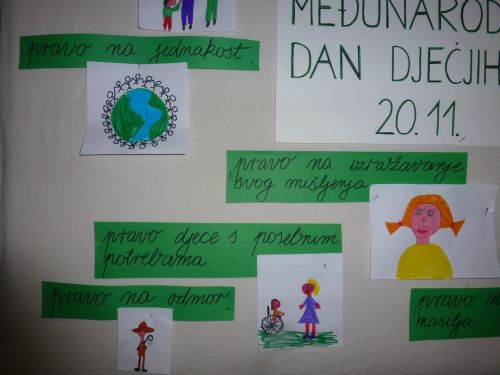 MEĐUNAROD
DAN DJEČJIH
20.11.
pravo na jednakost
pravo na izražavanje
svog mišljenja
pravo djece s posebnim
potrebama
pravo na odmor
pravo
nasilja